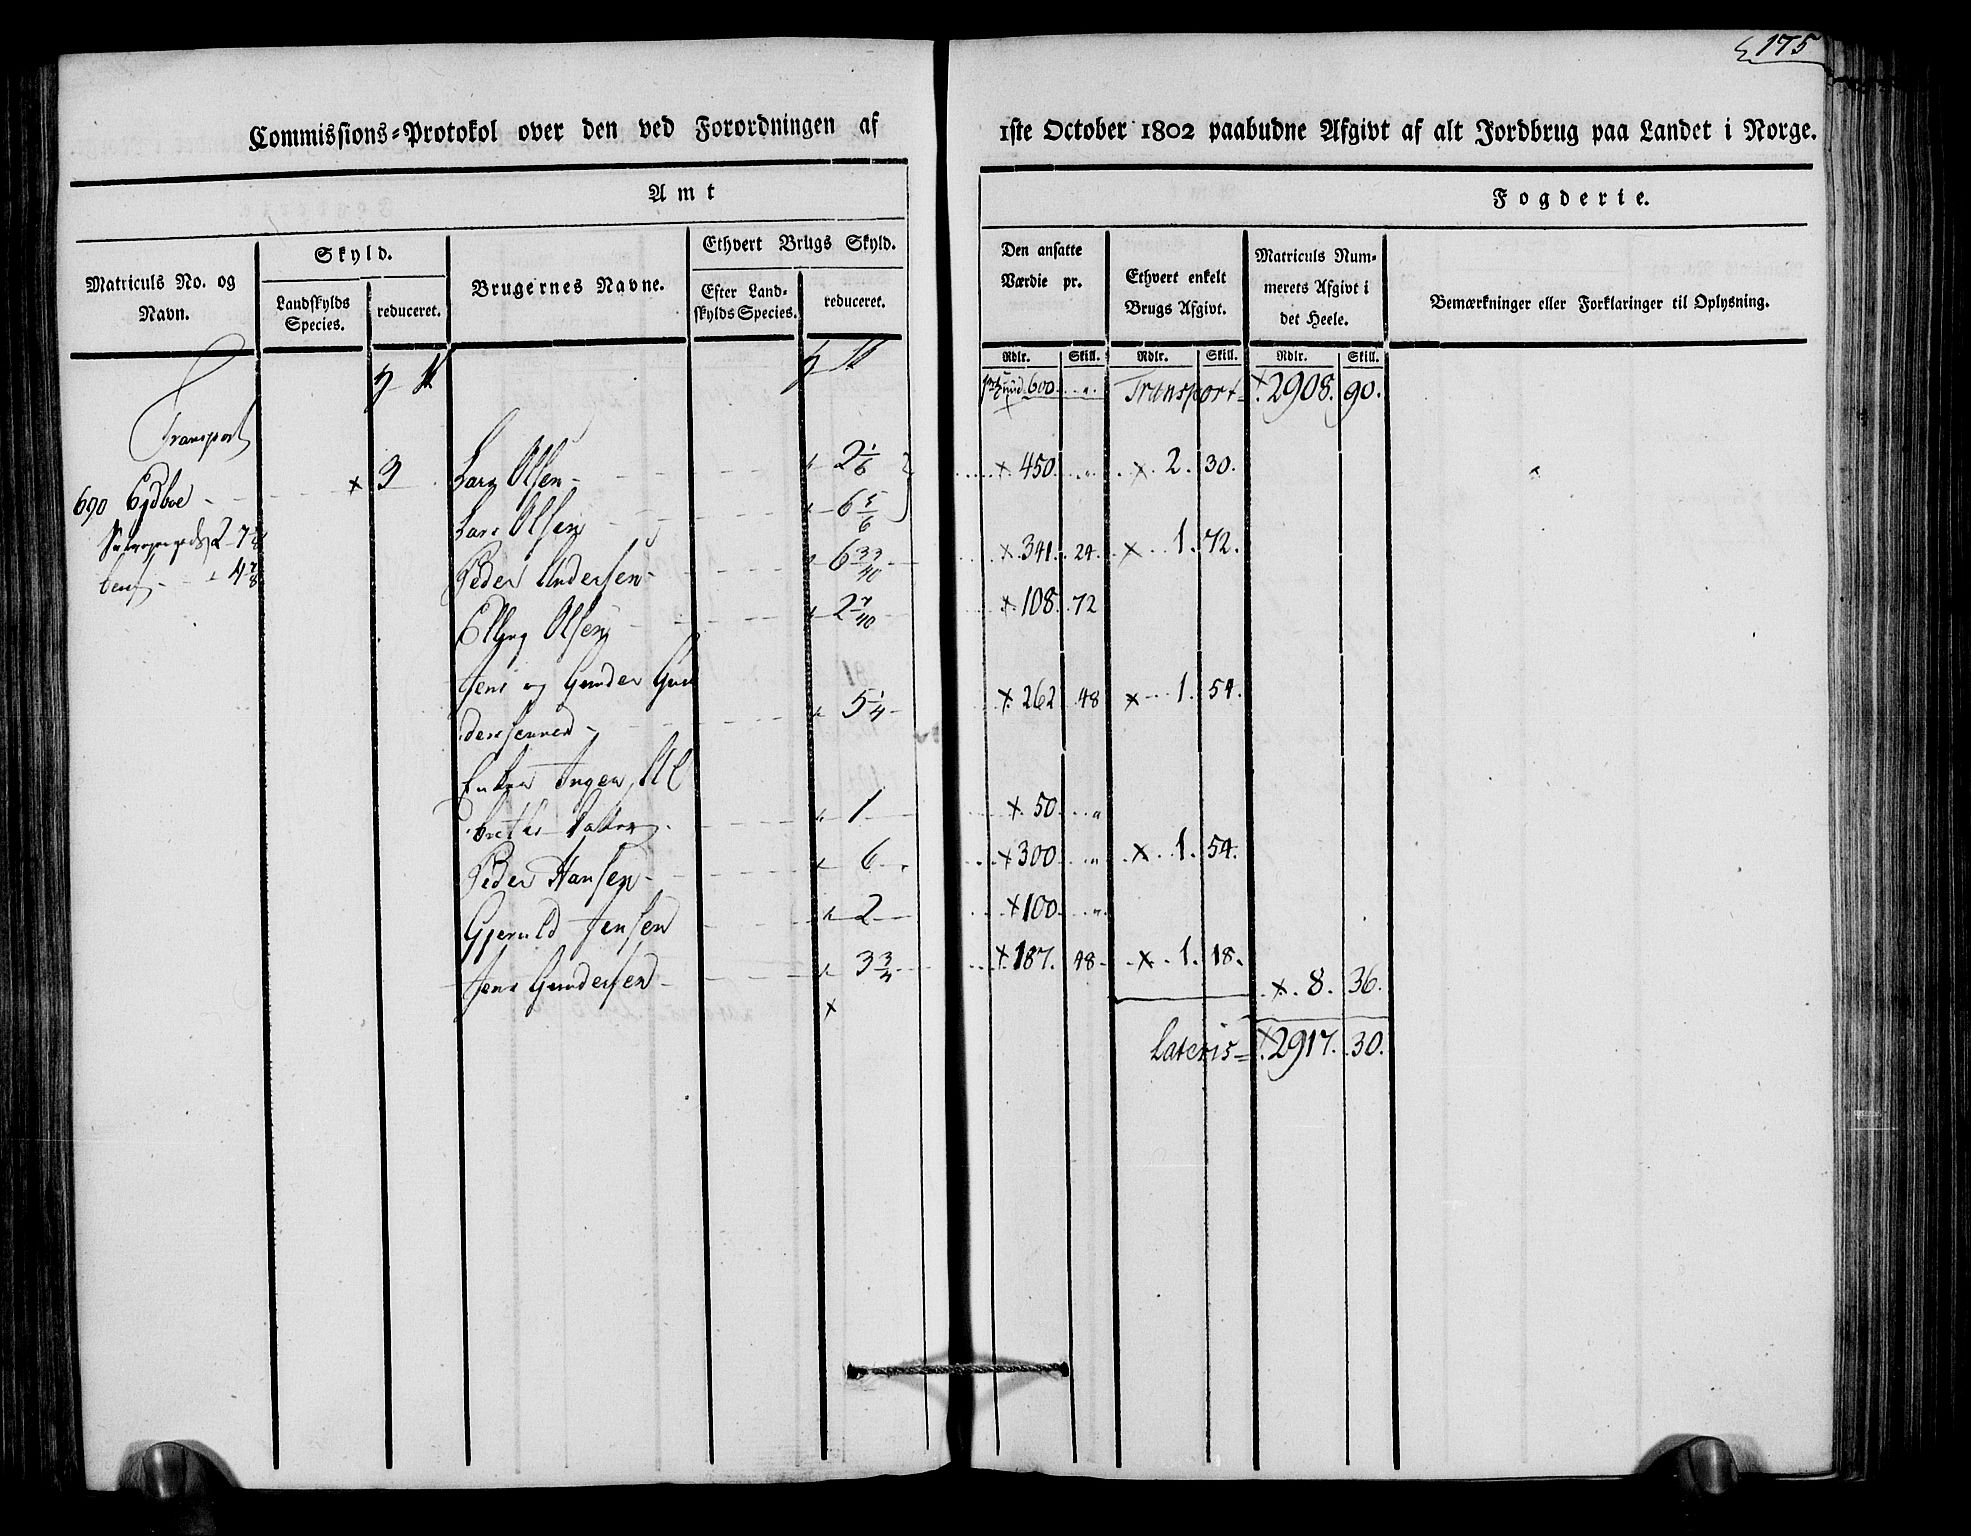 175
Commissions=Protokol over den ved Forordningen af 1ste October 1802 paabudne Afgivt af alt Jordbrug paa Landet i Norge.
Amt Fogderie.
Matriculs No. og Navn.
Skyld.
Landskylds Species.
reduceret.
Brugernes Navne.
Ethvert Brugs Skyld.
Efter Landskylds Species.
reduceret.
Den ansatte Værdie pr.
Ethvert enkelt Brugs Afgivt.
Matriculs Nummerets Afgivt i det Heele.
Bemærkninger eller Forklaringer til Oplysning.
Rdlr. Skill. Rdlr. Skill. Rdlr. Skill.
600 Transport 2908. 90.
Transport
690 3 Lars Olsen 2 1/6 450 2. 30.
Lars Olsen 6 5/6
2 7 Peder Andersen 6 33/40 341. 24. 1. 72.
4 7/8 Olsen 2 7/40 108. 72
Jens og Gunder Gun
dersenned 5 1/4 262 48 1. 54.
Enken
1 50
Peder Hansen 6 300 1. 54.
Gjeruld Jensen 2 100
Jens Gundersen 3 3/4 187. 48 1. 18.
8. 36.
Lateris 2917. 30.